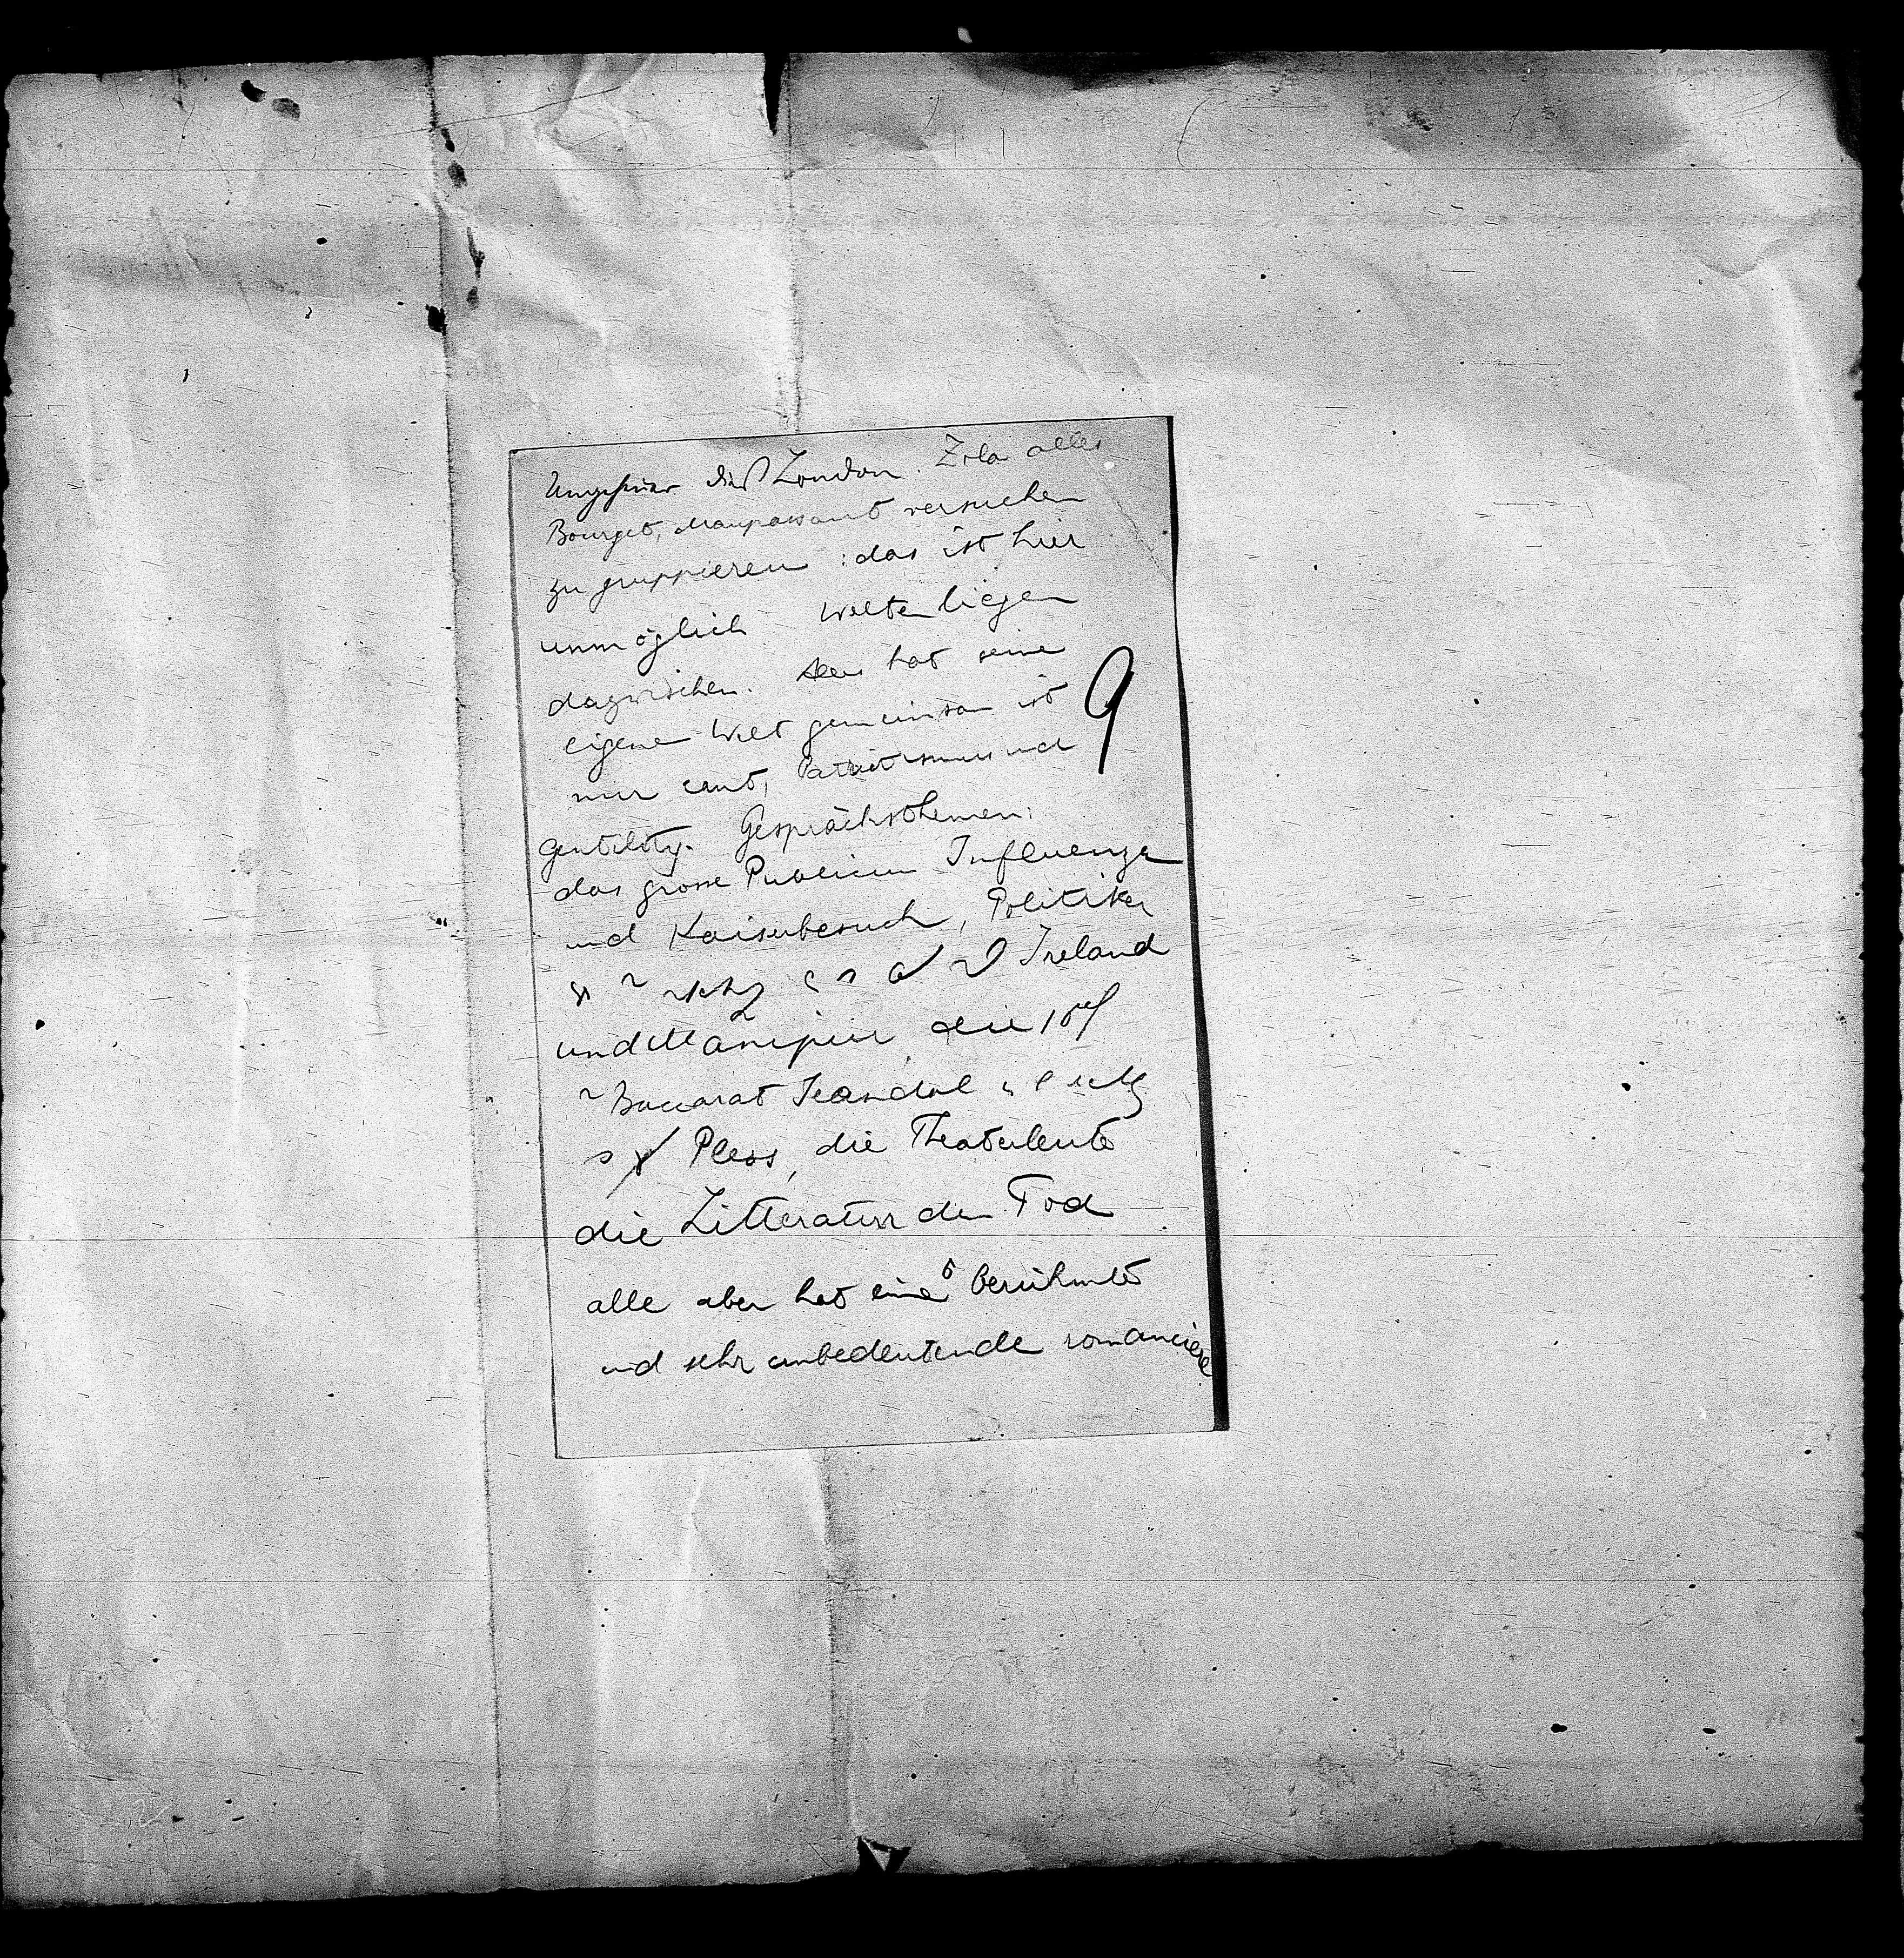 Ungeheuer dies London. Zola alles
Bourget, Maupassant versuchen
zu gruppieren: das ist hier
unmöglich Welten liegen
dazwischen. hat seine
eigene Welt gemeinsam ist
nur cant, Patriotismus und
gentility. Gesprächsthemen:
das grosse Publicum Influenza
und Kaiserbesuch, Politiker
Ireland
und Manipur die
Baccarat Skandal
Pless, die Theaterleute
die Litteratur den Tod
alle aber hat eine berühmte
und sehr unbedeutende romanciere
9